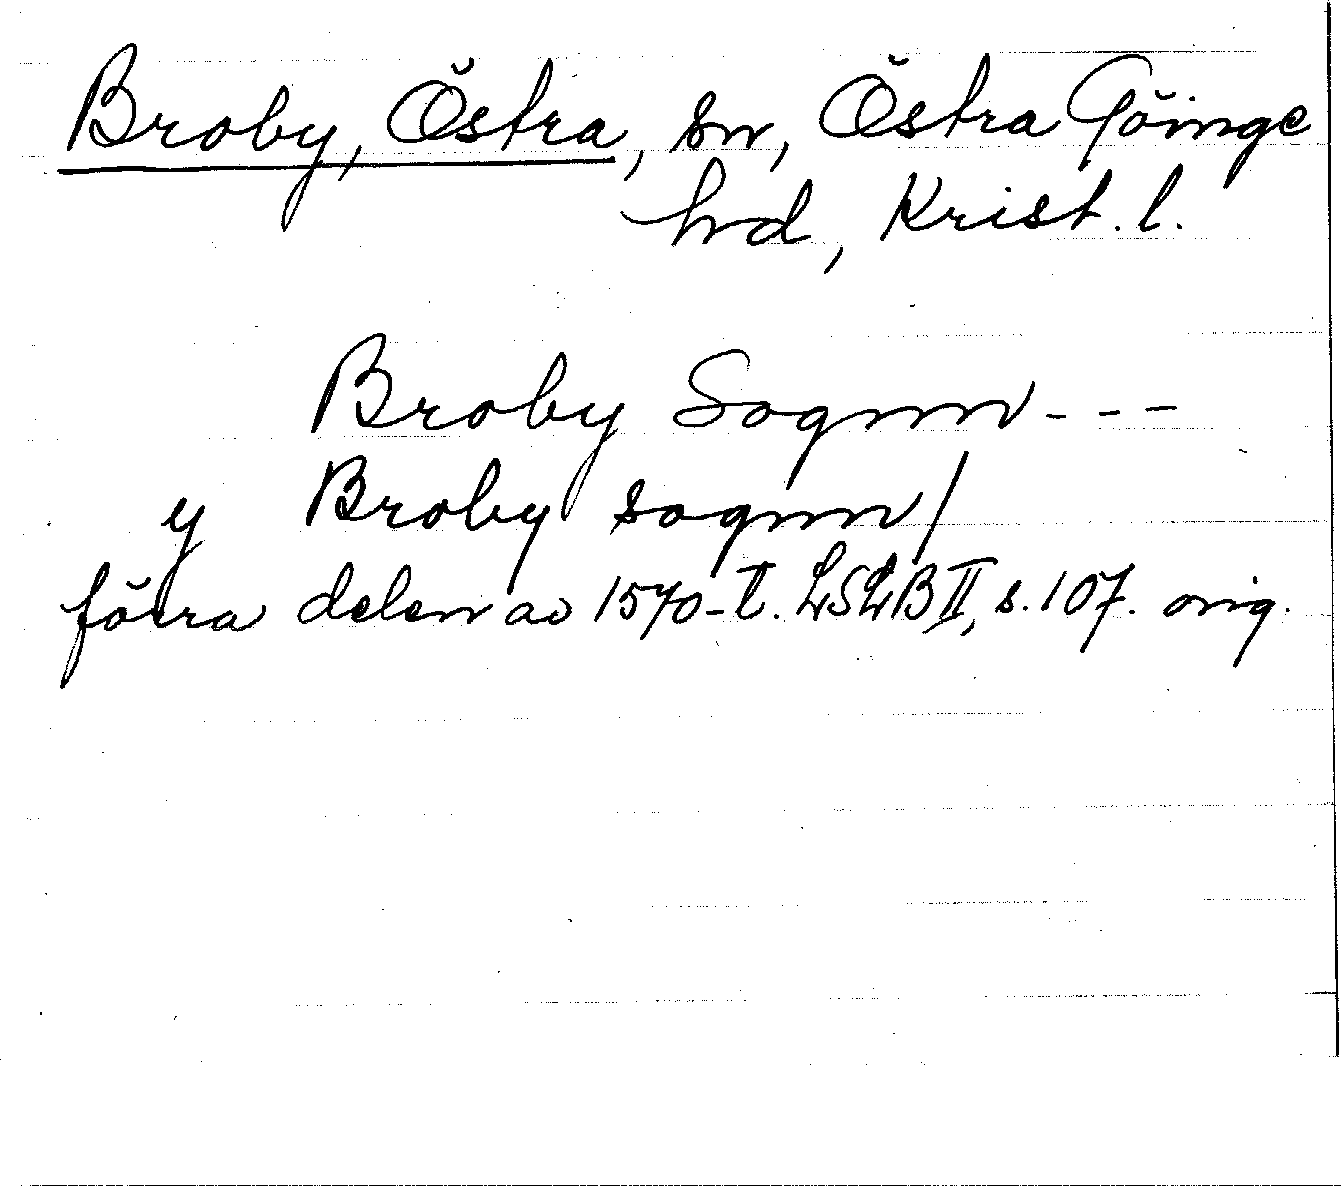 Broby, Östra, sn, Östra Göinge
hd, Krist. l.
Broby Sognn - - -
y Broby sognn/
förra delen av 1570-t. LSLB II, s. 107. orig.